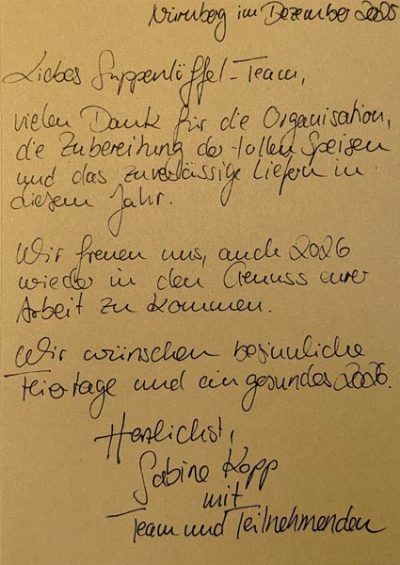 Nürnberg im Dezember 2025
Liebes Suppenlöffel-Team,
vielen Dank für die Organisation,
die Zubereitung der tollen Speisen
und das zuverlässige Liefern in
diesem Jahr.
Wir freuen uns, auch 2026
wieder in den Genuss eurer
Arbeit zu kommen.
Wir wünschen besinnliche
Feiertage und ein gesundes 2026.
Herzlichst,
Sabine Kopp
mit
Team und Teilnehmenden